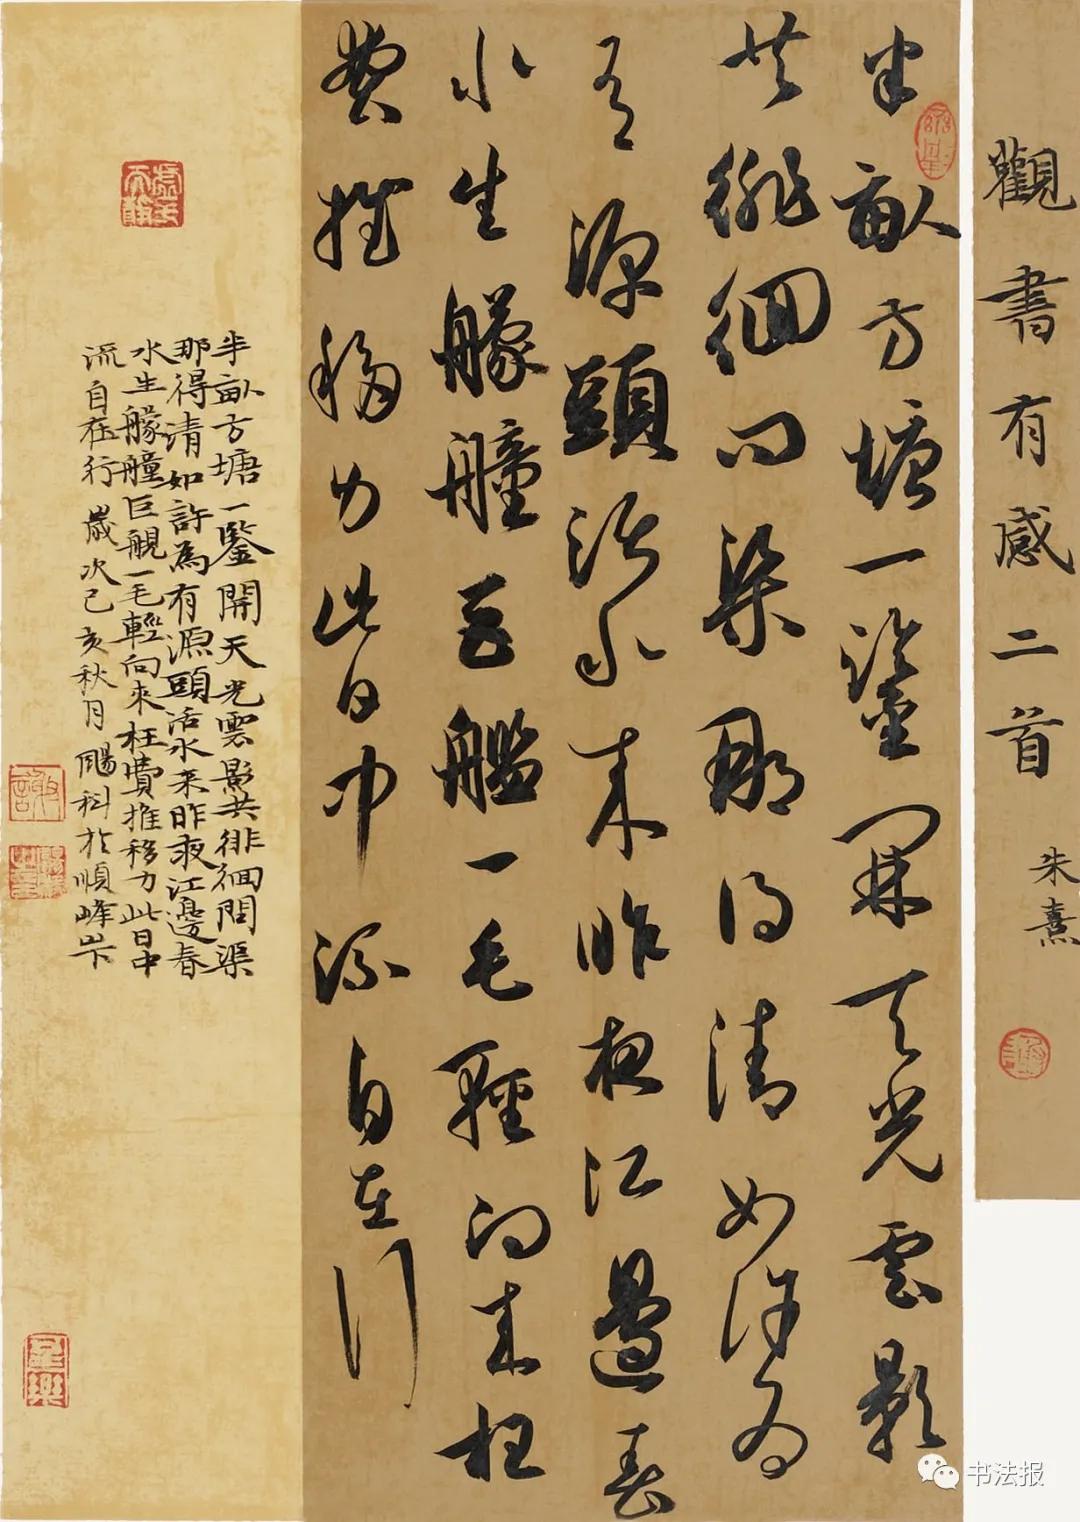 觀書有感二首
朱熹
半畝方塘一鑒開天光雲影
共徘徊問渠那得清如許為
有源頭活水來昨夜江邊春
水生艨艟巨艦一毛輕向來枉
費推移力此日中流自在行
半畝方塘一鑒開天光雲影共徘徊問渠
那得清如許為有源頭活水來昨夜江邊春
水生艨艟巨艦一毛輕向來枉費推移力此日中
流自在行 歲次己亥秋月 颺科於順峰山下
书法报